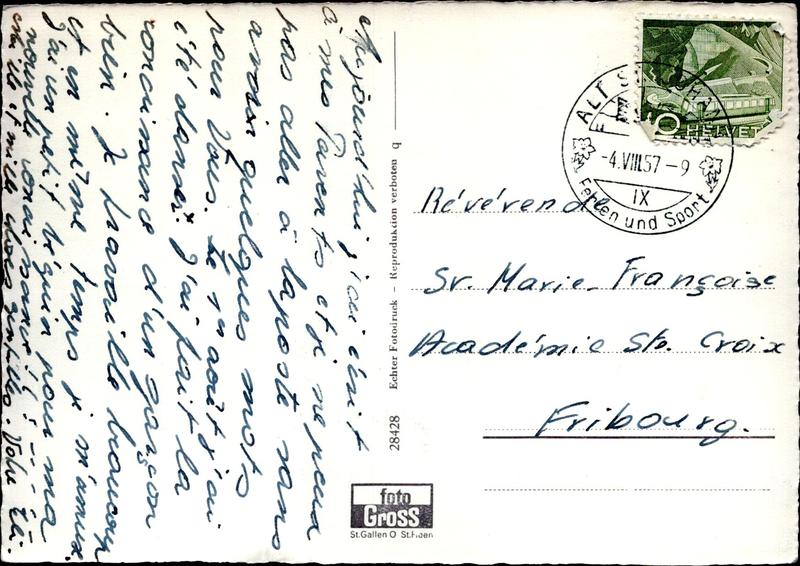 Aujourd'hui j'ai écrit
à mes Parents et je ne peux
pas aller à la poste sans
avoir quelques mots
pour Vous. Le 1er août j'ai
été danser. J'ai fait la
connaisance d'un garçon
bien. Je travaille beaucoup
et en même temps je m'amuse.
J'ai un petit béguin pour ma
nouvelle connaissance!!
mille et mille choses gentilles. Votre Eli.
28428 Echter Fotodruck – Reproduktion verboten q
foto
Gross
St.Gallen O St.Fiden
HELVETIA
ALT ST. JOHANN
-4.VIII.57-9
IX
Ferien und Sport
Révérende
Sr. Marie-Françoise
Académie Ste. Croix
Fribourg.